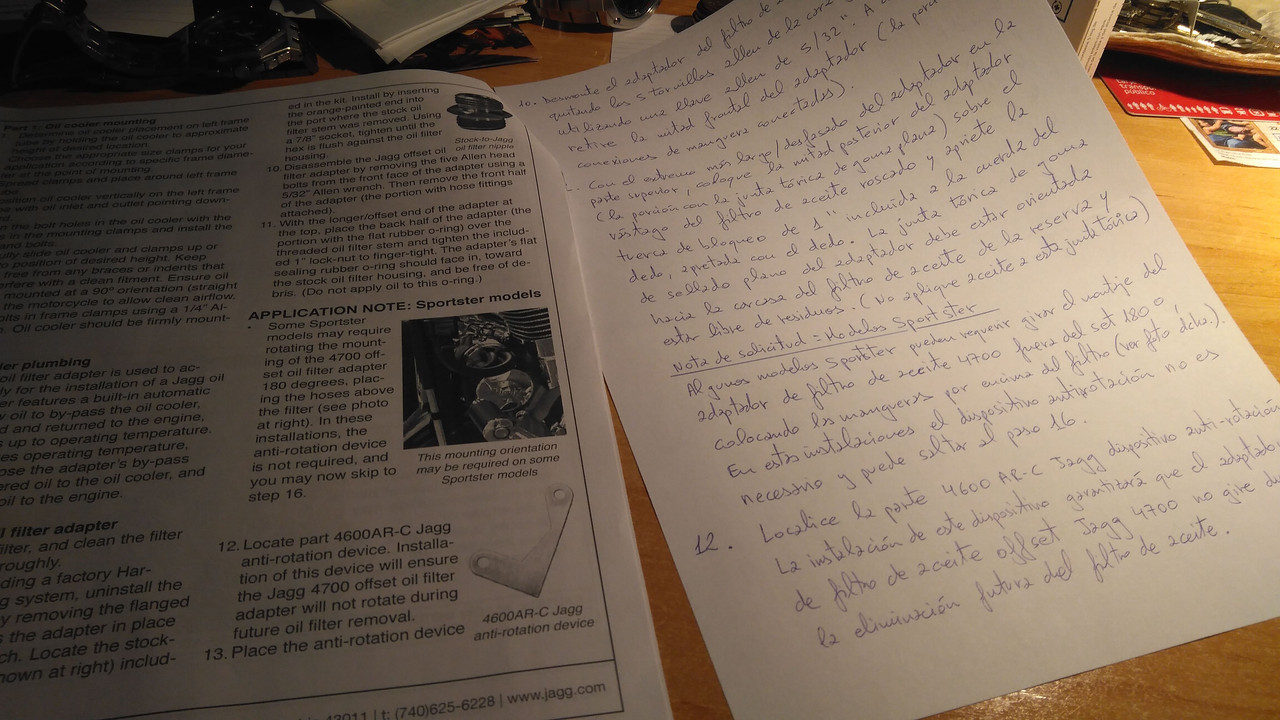 Part 1: Oil cooler mounting
Determine oil cooler placement on left frame
tube by holding the oil cooler to approximate
height of desired location.
Choose the appropriate size clamps for your
application according to specific frame diame-
ter at the point of mounting.
Spread clamps and place around left frame
position oil cooler vertically on the left frame
be with oil inlet and outlet pointing down-
the bolt holes in the oil cooler with the
in the mounting clamps and install the
and bolts.
ully slide oil cooler and clamps up or
o position of desired height. Keep
free from any braces or indents that
erfere with a clean fitment. Ensure oil
mounted at a 90° orientation (straight
the motorcycle to allow clean airflow.
olts in frame clamps using a 1/4" Al-
n. Oil cooler should be firmly mount-
ler plumbing
oil filter adapter is used to ac-
ly for the installation of a Jagg oil
er features a built-in automatic
oil to by-pass the oil cooler,
d and returned to the engine,
s up to operating temperature.
es operating temperature,
ose the adapter's by-pass
ered oil to the oil cooler, and
oil to the engine.
l filter adapter
filter, and clean the filter
roughly.
ding a factory Har-
g system, uninstall the
y removing the flanged
s the adapter in place
ch. Locate the stock-
hown at right) includ-
ed in the kit. Install by inserting
the orange-painted end into
the port where the stock oil
filter stem was removed. Using
a 7/8" socket, tighten until the
hex is flush against the oil filter
housing.
Stock-to-Jagg
oil filter nipple
10. Disassemble the Jagg offset oil
filter adapter by removing the five Allen head
bolts from the front face of the adapter using a
5/32" Allen wrench. Then remove the front half
of the adapter (the portion with hose fittings
attached).
11. With the longer/offset end of the adapter at
the top, place the back half of the adapter (the
portion with the flat rubber o-ring) over the
threaded oil filter stem and tighten the includ-
ed 1" lock-nut to finger-tight. The adapter's flat
sealing rubber o-ring should face in, toward
the stock oil filter housing, and be free of de-
bris. (Do not apply oil to this o-ring.)
APPLICATION NOTE: Sportster models
• Some Sportster
models may require
rotating the mount-
ing of the 4700 off-
set oil filter adapter
180 degrees, plac-
ing the hoses above
the filter (see photo
at right). In these
installations, the
anti-rotation device
is not required, and
you may now skip to
step 16.
This mounting orientation
may be required on some
Sportster models
12. Locate part 4600AR-C Jagg
anti-rotation device. Installa-
tion of this device will ensure
the Jagg 4700 offset oil filter
adapter will not rotate during
future oil filter removal.
13. Place the anti-rotation device
4600AR-C Jagg
anti-rotation device
43011 | t: (740)625-6228 | www.jagg.com
10. Desmonte el adaptador del filtro de
quitando los 5 tornillos allen de la cara
utilizando una llave allen de 5/32". A
retire la mitad frontal del adaptador (la porci
conexiones de manguera conectadas).
Con el extremo más largo/desfasado del adaptador en la
parte superior, coloque la mitad posterior del adaptador
(la porción con la junta tórica de goma plana) sobre el
vástago del filtro de aceite roscado y apriete la
tuerca de bloqueo de 1" incluida a la cuerda del
dedo, apretada con el dedo. La junta tórica de goma
de sellado plano del adaptador debe estar orientada
hacia la carcasa del filtro de aceite de la reserva y
estar libre de residuos. (No aplique aceite a esta junta tórica)
Nota de solicitud = Modelos Sportster
Algunos modelos Sportster pueden requerir girar el montaje del
adaptador de filtro de aceite 4700 fuera del set 180
colocando las mangueras por encima del filtro (ver foto dcha.).
En estas instalaciones el dispositivo antirrotación no es
necesario y puede saltar al paso 16.
12. Localice la parte 4600 AR-C Jagg dispositivo anti-rotación
La instalación de este dispositivo garantizará que el adaptado
de filtro de aceite offset Jagg 4700 no gire du
la eliminación futura del filtro de aceite.
transp
público